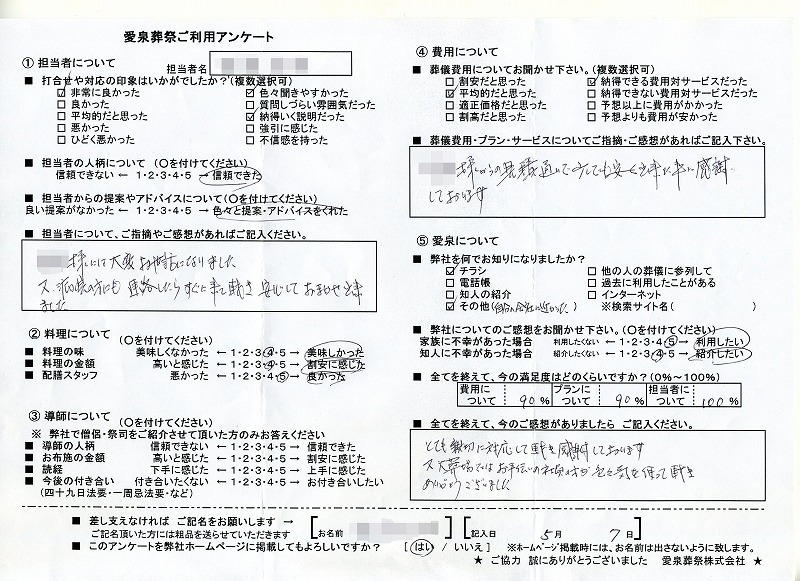 愛泉葬祭ご利用アンケート
① 担当者について
担当者名
■ 打合せや対応の印象はいかがでしたか?(複数選択可)
☑ 非常に良かった ☑ 色々聞きやすかった
□ 良かった □ 質問しづらい雰囲気だった
□ 平均的だと思った ☑ 納得いく説明だった
□ 悪かった □ 強引に感じた
□ ひどく悪かった □ 不信感を持った
■ 担当者の人柄について (〇を付けてください)
信頼できない ← 1・2・3・4・5 → 信頼できた
■ 担当者からの提案やアドバイスについて(〇を付けてください)
良い提案がなかった ← 1・2・3・4・5 → 色々と提案・アドバイスをくれた
■ 担当者について、ご指摘やご感想があればご記入ください。
様には大変お世話になりました
又、派遣の方にも連絡したらすぐに来て頂き安心しておまかせ出来
ました
② 料理について (〇を付けてください)
■ 料理の味 美味しくなかった ← 1・2・3・4・5 → 美味しかった
■ 料理の金額 高いと感じた ← 1・2・3・4・5 → 割安に感じた
■ 配膳スタッフ 悪かった ← 1・2・3・4・5 → 良かった
③ 導師について (〇を付けてください)
※ 弊社で僧侶・祭司をご紹介させて頂いた方のみお答えください
■ 導師の人柄 信頼できない ← 1・2・3・4・5 → 信頼できた
■ お布施の金額 高いと感じた ← 1・2・3・4・5 → 割安に感じた
■ 読経 下手に感じた ← 1・2・3・4・5 → 上手に感じた
■ 今後の付き合い 付き合いたくない ← 1・2・3・4・5 → お付き合いしたい
(四十九日法要・一周忌法要・など)
④ 費用について
■ 葬儀費用についてお聞かせ下さい。(複数選択可)
□ 割安だと思った ☑ 納得できる費用対サービスだった
☑ 平均的だと思った □ 納得できない費用対サービスだった
□ 適正価格だと思った □ 予想以上に費用がかかった
□ 割高だと思った □ 予想よりも費用が安かった
■ 葬儀費用・プラン・サービスについてご指摘・ご感想があればご記入下さい。
様からの見積通りで少しでも安く出来た事に感謝
しております
⑤ 愛泉について
■ 弊社を何でお知りになりましたか?
☑ チラシ □ 他の人の葬儀に参列して
□ 電話帳 □ 過去に利用したことがある
□ 知人の紹介 □ インターネット
☑ その他(自分の会社に近かった) ※検索サイト名( )
■ 弊社についてのご感想をお聞かせ下さい。(〇を付けてください)
家族に不幸があった場合 利用したくない ← 1・2・3・4・5 → 利用したい
知人に不幸があった場合 紹介したくない ← 1・2・3・4・5 → 紹介したい
■ 全てを終えて、今の満足度はどのくらいですか?(0%~100%)
費用について 90% プランについて 90% 担当者について 100%
■ 全てを終えて、今のご感想がありましたら ご記入ください。
とても親切に対応して頂き感謝しております
又、火葬場ではお手伝いの社員の方が色々気を使って頂き
ありがとうございました
■ 差し支えなければ ご記名をお願いします → [お名前 ] [記入日 5月 7日]
ご記名頂いた方には粗品を送らせていただきます
■ このアンケートを弊社ホームページに掲載してもよろしいですか? [はい / いいえ] ※ホームページ掲載時には、お名前は出さないように致します。
★ ご協力 誠にありがとうございました 愛泉葬祭株式会社 ★